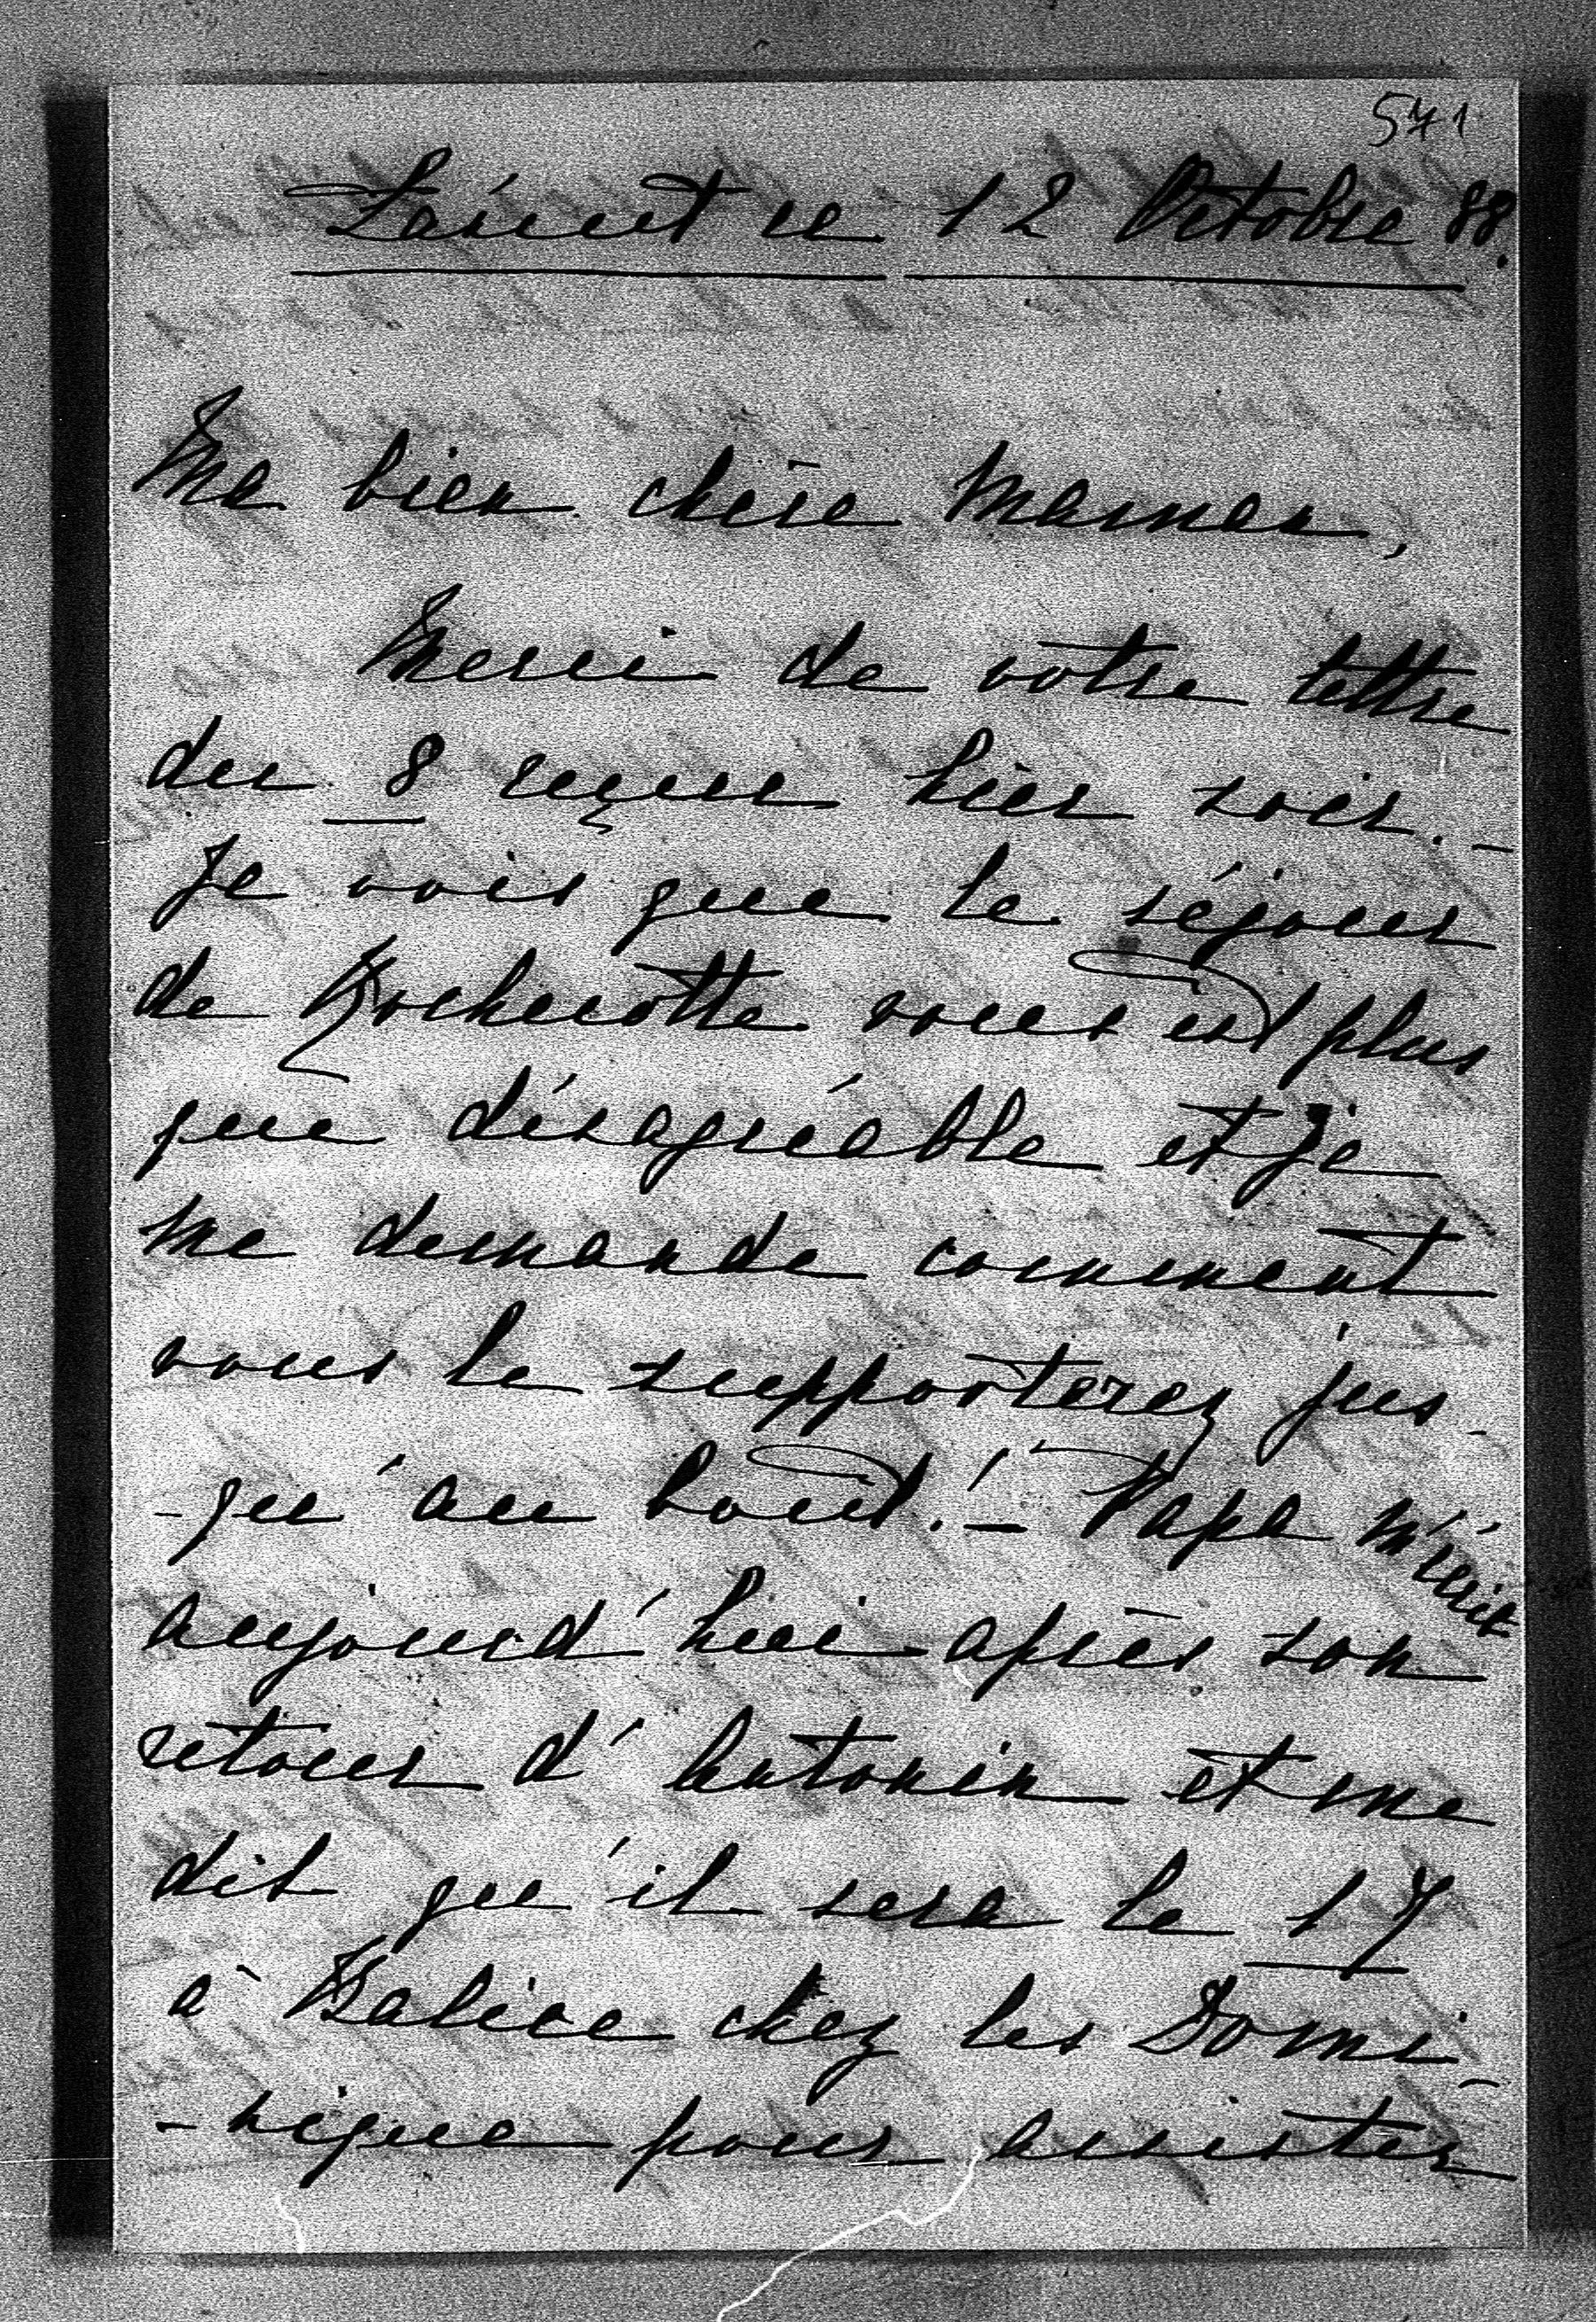 571
Lancut ce 12 Octobre 88.
Ma bien chère Maman,
Merci de votre lettre
du 8 reçue hier soir. –
Je vois que le séjour
de Rochecotte vous est plus
que désagréable et je
me demande comment
vous le supporterez jus-
-qu'au bout! – Papa m'écrit
aujourd'hui après son
retour d'Antonin et me
dit qu'il sera le 17
à Balice chez les Domi-
-nique pour assister